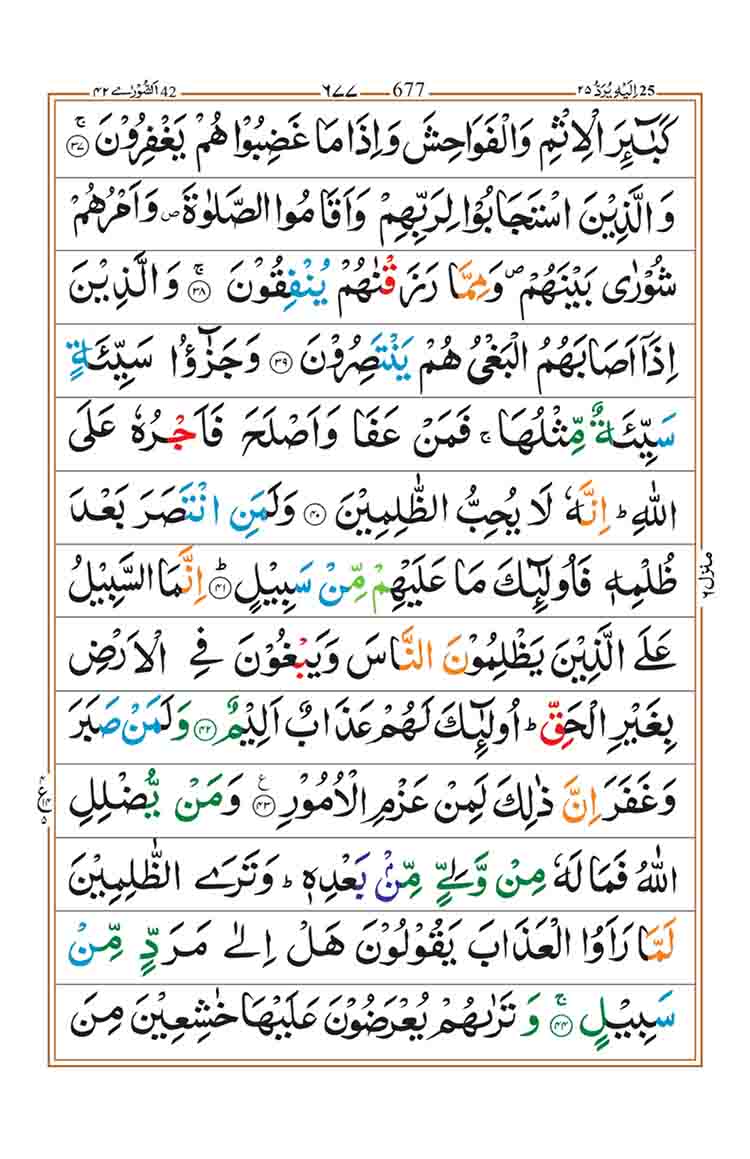 ٢٥ اِلَيْهِ يُرَدُّ 25 677 ٦٧٧ اَلشُّوْرٰى ٤٢ 42
كَبٰٓئِرَ الْاِثْمِ وَالْفَوَاحِشَ وَاِذَا مَا غَضِبُوْا هُمْ يَغْفِرُوْنَ ۚ ﴿٣٧﴾
وَالَّذِيْنَ اسْتَجَابُوْا لِرَبِّهِمْ وَاَقَامُوا الصَّلٰوةَ ۪ وَاَمْرُهُمْ
شُوْرٰى بَيْنَهُمْ ۪ وَمِمَّا رَزَقْنٰهُمْ يُنْفِقُوْنَ ۚ ﴿٣٨﴾ وَالَّذِيْنَ
اِذَاۤ اَصَابَهُمُ الْبَغْيُ هُمْ يَنْتَصِرُوْنَ ﴿٣٩﴾ وَجَزٰٓؤُا سَيِّئَةٍ
سَيِّئَةٌ مِّثْلُهَا ۚ فَمَنْ عَفَا وَاَصْلَحَ فَاَجْرُهٗ عَلَى
اللّٰهِ ؕ اِنَّهٗ لَا يُحِبُّ الظّٰلِمِيْنَ ﴿٤٠﴾ وَلَمَنِ انْتَصَرَ بَعْدَ
ظُلْمِهٖ فَاُولٰٓئِكَ مَا عَلَيْهِمْ مِّنْ سَبِيْلٍ ؕ ﴿٤١﴾ اِنَّمَا السَّبِيْلُ
عَلَى الَّذِيْنَ يَظْلِمُوْنَ النَّاسَ وَيَبْغُوْنَ فِى الْاَرْضِ
بِغَيْرِ الْحَقِّ ؕ اُولٰٓئِكَ لَهُمْ عَذَابٌ اَلِيْمٌ ﴿٤٢﴾ وَلَمَنْ صَبَرَ
وَغَفَرَ اِنَّ ذٰلِكَ لَمِنْ عَزْمِ الْاُمُوْرِ ع ﴿٤٣﴾ وَمَنْ يُّضْلِلِ
اللّٰهُ فَمَا لَهٗ مِنْ وَّلِيٍّ مِّنْۢ بَعْدِهٖ ؕ وَتَرَى الظّٰلِمِيْنَ
لَمَّا رَاَوُا الْعَذَابَ يَقُوْلُوْنَ هَلْ اِلٰى مَرَدٍّ مِّنْ
سَبِيْلٍ ۚ ﴿٤٤﴾ وَتَرٰىهُمْ يُعْرَضُوْنَ عَلَيْهَا خٰشِعِيْنَ مِنَ
منزل ٦
٤ ع ١٤ ٥